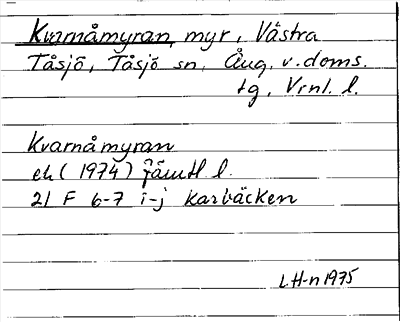 Kvarnåmyran, myr, Västra
Tåsjö, Tåsjö sn, Ång. v. doms.
tg, Vrnl. l.
Kvarnåmyran
ek (1974) Jämtl l.
21 F 6-7 i-j Karbäcken
L H-n 1975